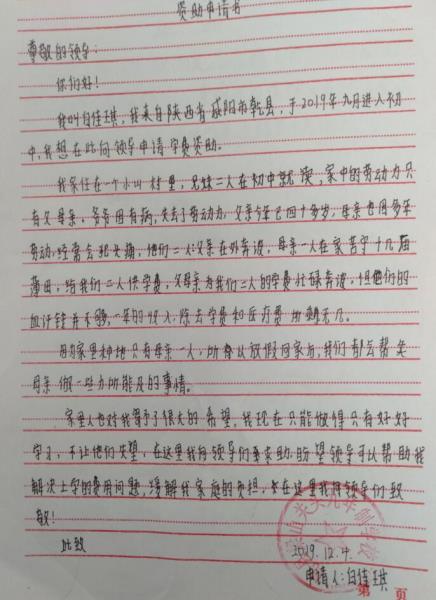 资助申请书
尊敬的领导:
你们好!
我叫白佳琪,我来自陕西省咸阳市乾县,于2019年九月进入初
中,我想在此向领导申请学费资助。
我家住在一个小山村里,兄妹二人在初中就读,家中的劳动力只
有父母亲,爷爷因有病,失去了劳动力,父亲今年已四十多岁,母亲也因多年
劳动,经常会犯头痛,他们二人父亲在外奔波,母亲一人在家苦守十几亩
薄田,给我们二人供学费,父母亲为我们二人的学费忙碌奔波,但他们的
血汗钱并不够,一年的收入,除去学费和医疗费所剩无几。
因为家里种地只有母亲一人,所以放假回家后,我们都会帮
母亲做一些力所能及的事情。
家里人也对我寄予了很大的希望,我现在只能做得只有好好
学习,不让他们失望,在这里我向领导们要求助,盼望领导可以帮助我
解决上学的费用问题,缓解我家庭的负担,在这里我向领导们致
敬!
此致
2019.12.4.
申请人:白佳琪
第 页